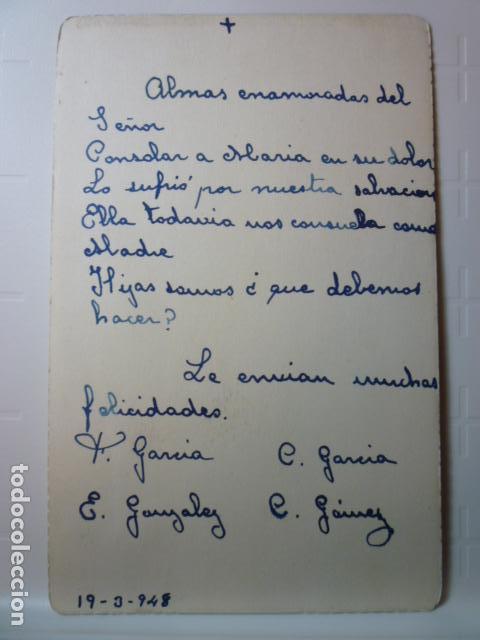 +
Almas enamoradas del
Señor
Consolar a Maria en su dolor
Lo sufrió por nuestra salvacion
Ella todavia nos consuela como
Madre
Hijas somos ¿ que debemos
hacer?
Le envian muchas
felicidades.
F. Garcia C. Garcia
E. Gonzalez C. Gómez
19-3-948
todocoleccion